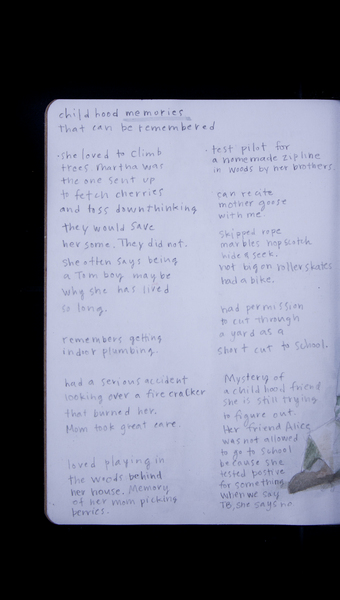 childhood memories
that can be remembered
-she loved to climb
trees Martha was
the one sent up
to fetch cherries
and toss down thinking
they would save
her some. They did not.
She often says being
a Tom boy maybe
why she has lived
so long.
remembers getting
indoor plumbing.
had a serious accident
looking over a fire cracker
that burned her.
Mom took great care.
loved playing in
the woods behind
her house. Memory
of her mom picking
berries.
-test pilot for
a homemade zip line
in woods by her brothers.
can recite
mother goose
with me
skipped rope
marbles hopscotch
hide & seek.
not big on roller skates
had a bike.
had permission
to cut through
a yard as a
short cut to school.
Mystery of
a childhood friend
she is still trying
to figure out.
Her friend Alice
was not allowed
to go to school
because she
tested positive
for something
when we say
TB, she says no.